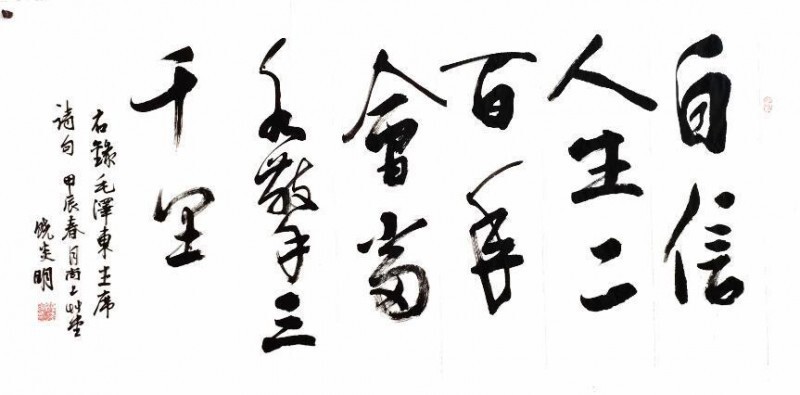 自信
人生二
百年
會當
水擊三
千里
右錄毛澤東主席
詩句 甲辰春月上艸堂
饶炎明